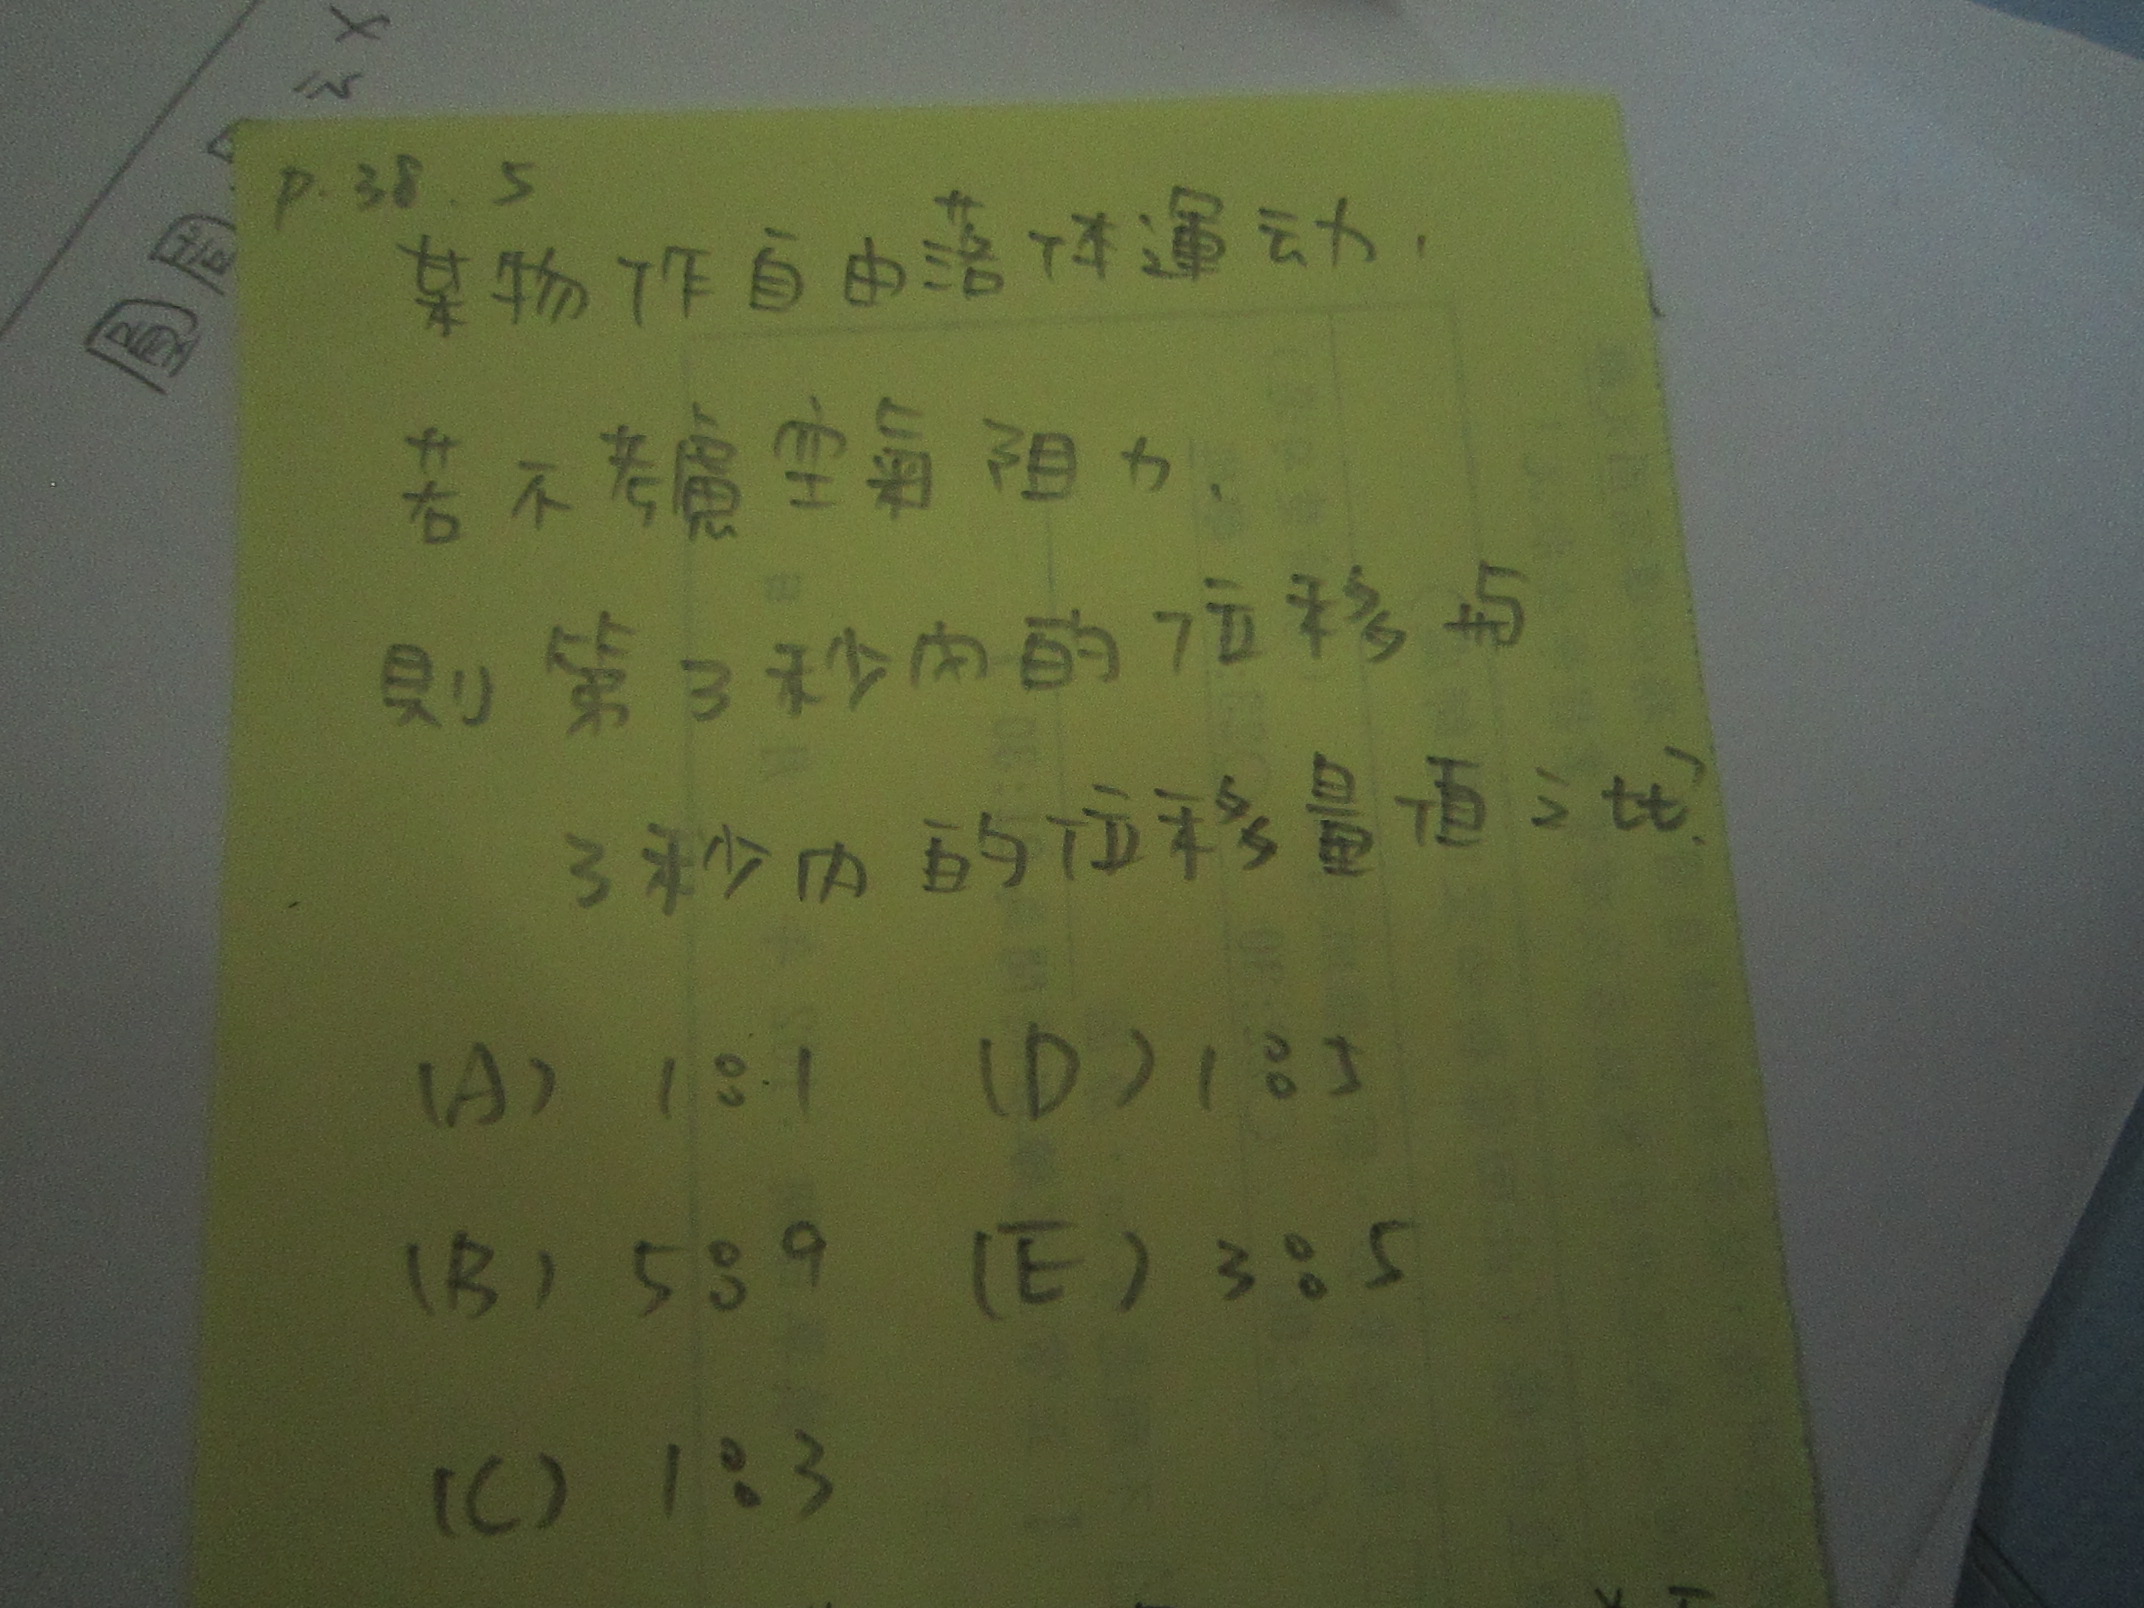 p.38.5
某物作自由落体運动,
若不考慮空氣阻力,
則第3秒內的位移与
3秒內的位移量值之比
(A) 1:1 (D) 1:5
(B) 5:9 (E) 3:5
(C) 1:3